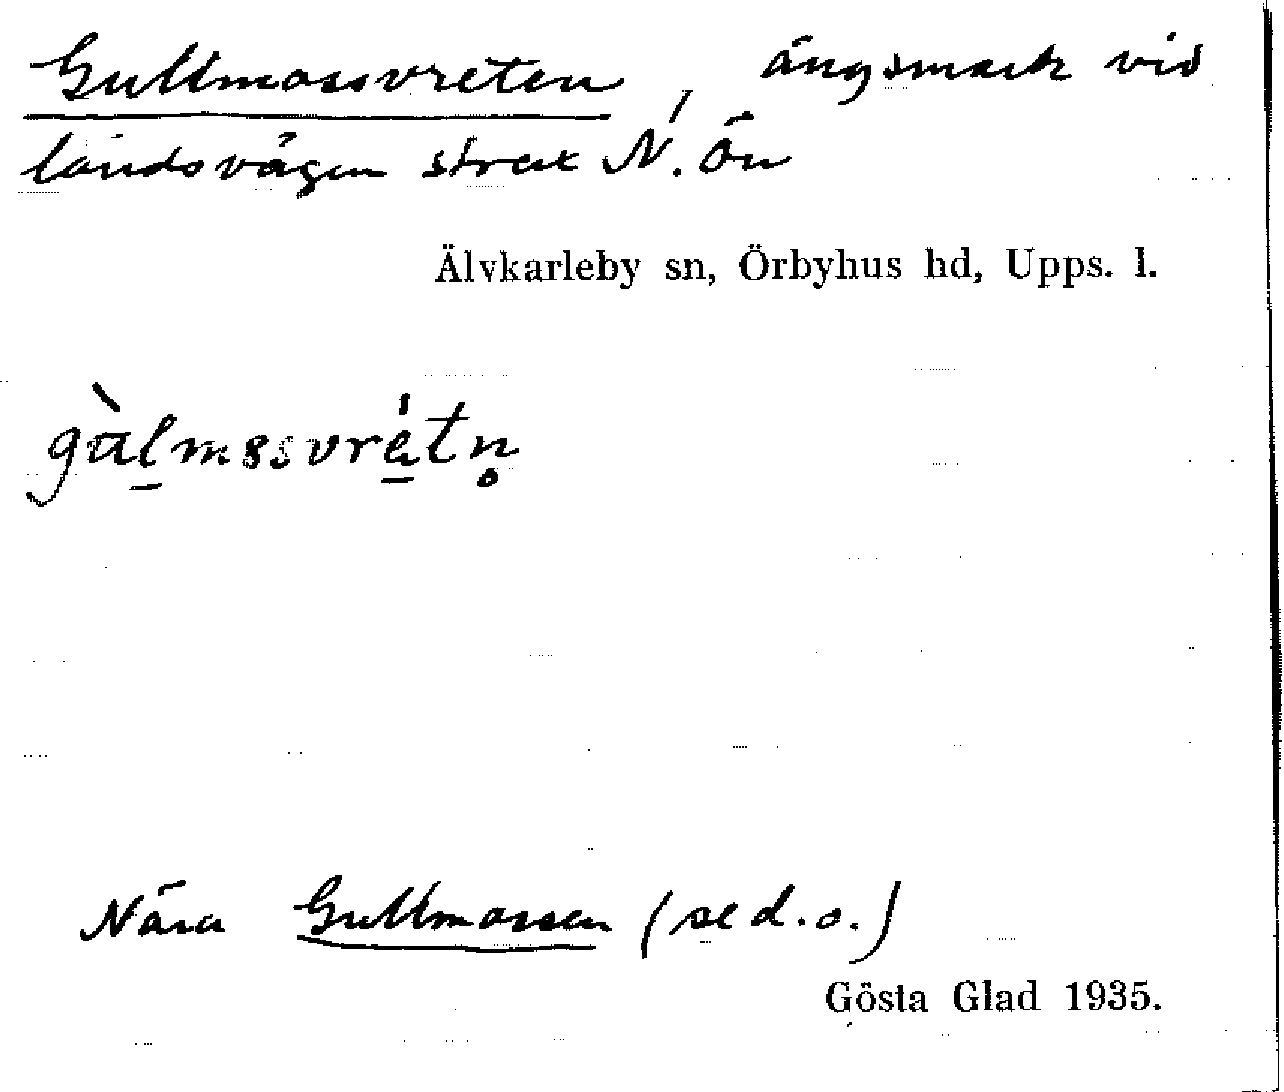 Gullmossvreten, ängsmark vid
landsvägen strax N. Ön
Älvkarleby sn, Örbyhus hd, Upps. l.
Nära Gullmossen (se d.o.)
Gösta Glad 1935.